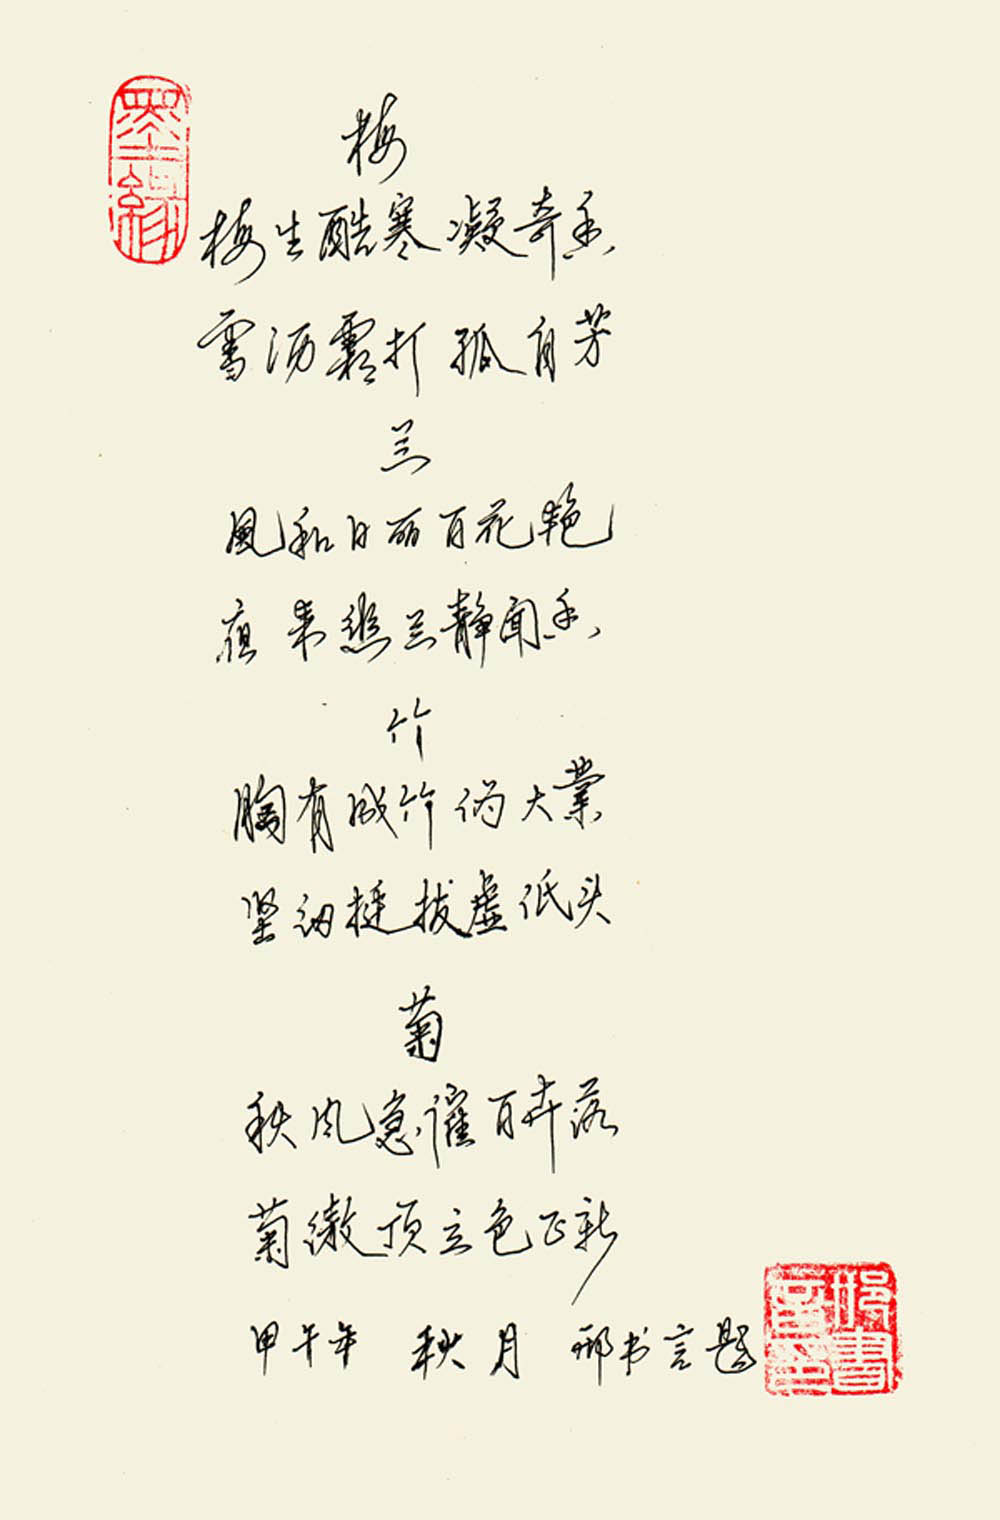 墨缘
梅
梅生酷寒凝奇香
雪沥霜打孤自芳
兰
風和日丽百花艳
夜来幽兰静闻香
竹
胸有成竹伪大業
坚韧挺拔虚低头
菊
秋风急催百卉落
菊傲顶立色正新
甲午年 秋月 邢书言题
邢書言印